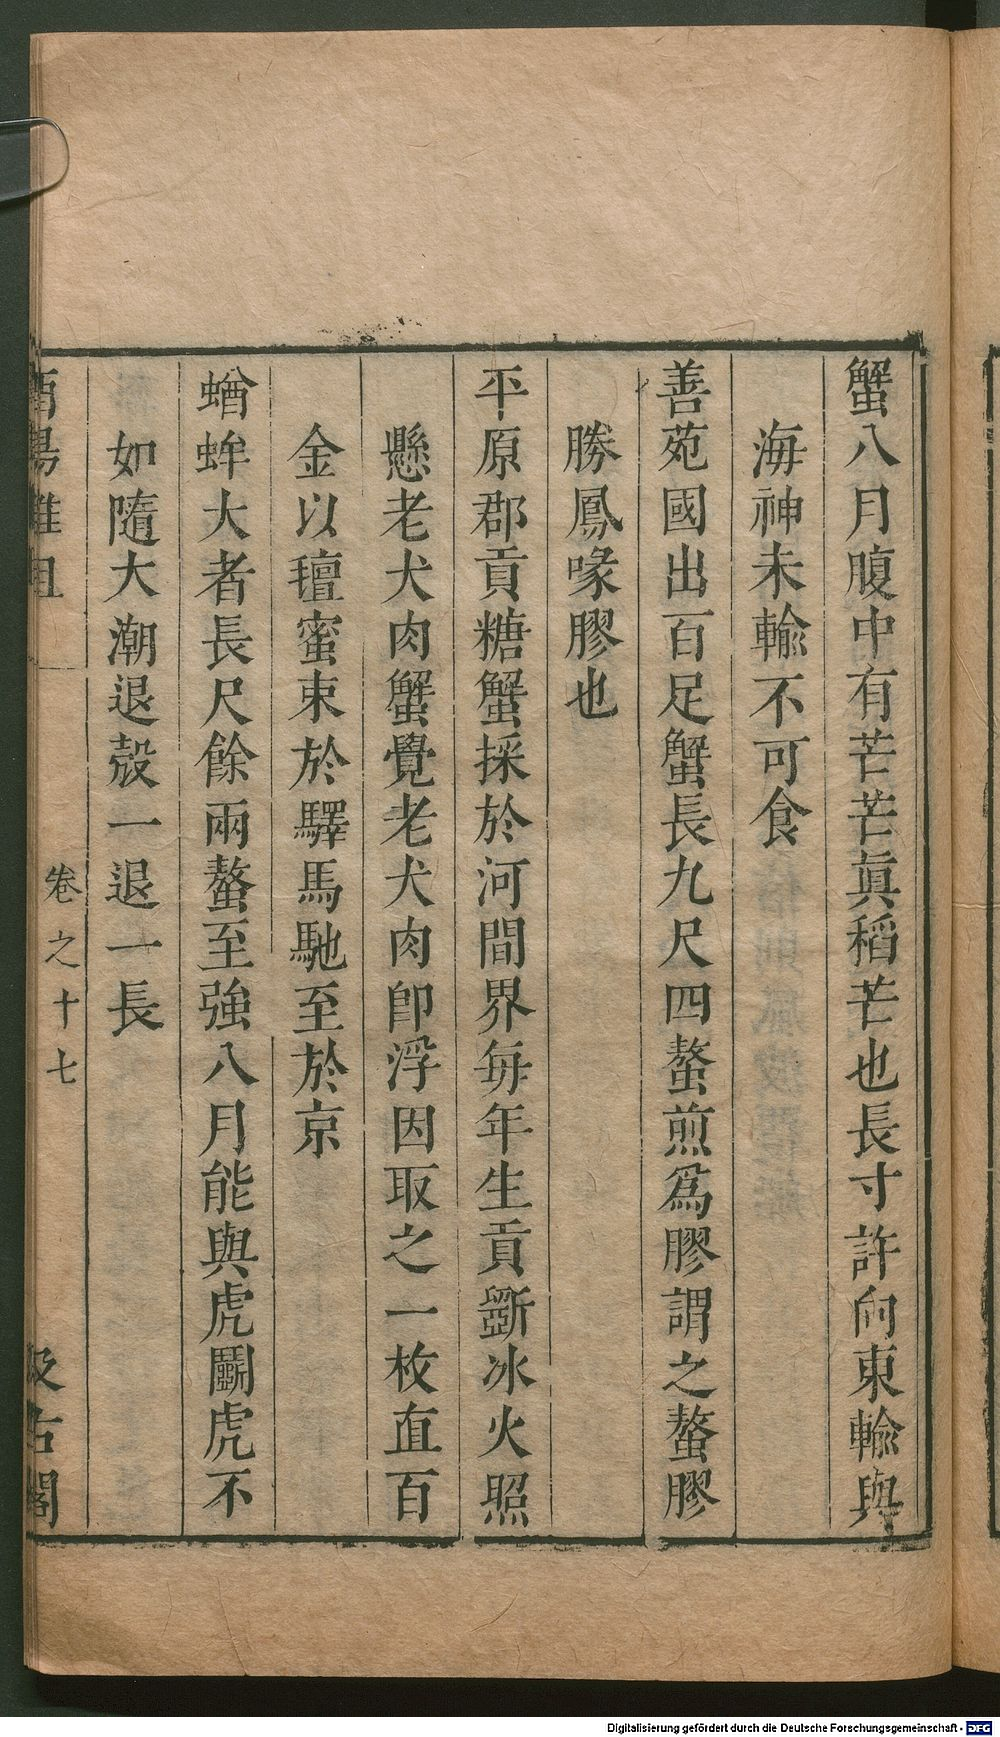 蟹八月腹中有芒芒眞稻芒也長寸許向東輸與
海神未輸不可食
善苑國出百足蟹長九尺四螯煎爲膠謂之螯膠
勝鳳喙膠也
平原郡貢糖蟹採於河間界每年生貢斵冰火照
懸老犬肉蟹覺老犬肉卽浮因取之一枚直百
金以氊蜜束於驛馬馳至於京
蝤蛑大者長尺餘兩螯至強八月能與虎鬬虎不
如隨大潮退殼一退一長
酉陽雜俎
卷之十七
汲古閣
Digitalisierung gefördert durch die Deutsche Forschungsgemeinschaft - DFG